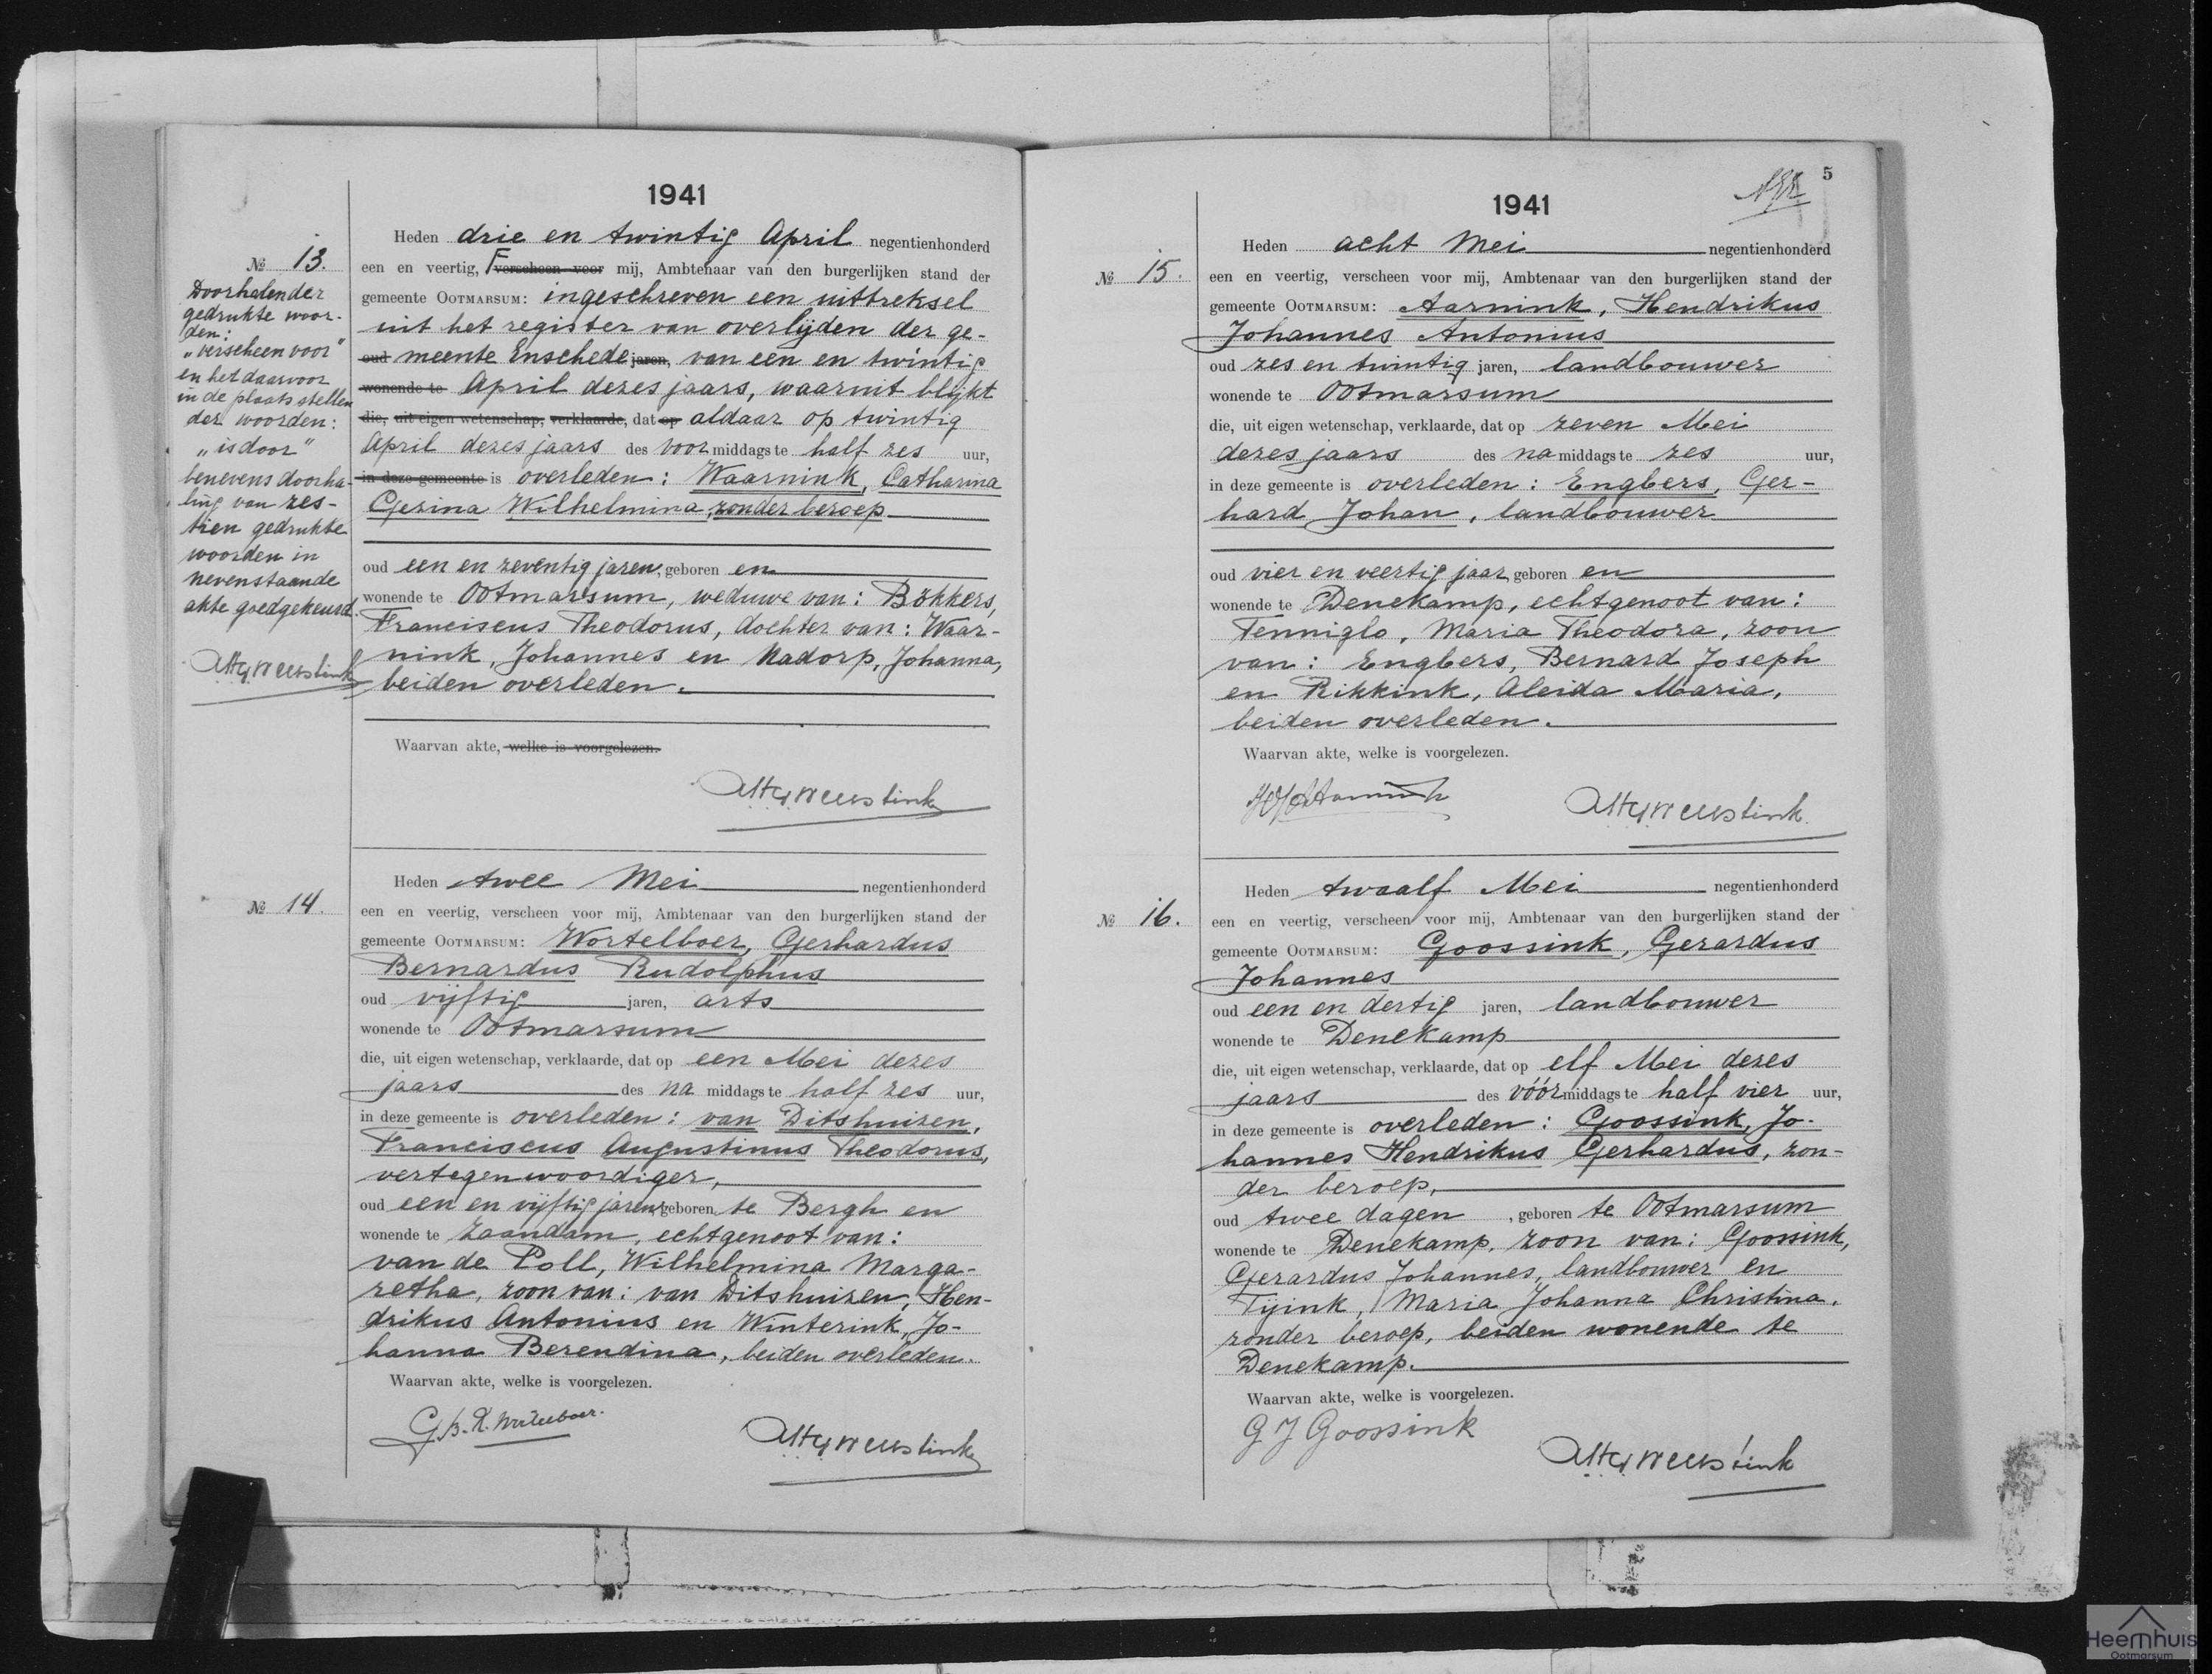 1941
Heden drie en twintig April negentienhonderd
№ 13.
een en veertig, verscheen voor mij, Ambtenaar van den burgerlijken stand der
gemeente OOTMARSUM: ingeschreven een uittreksel
uit het register van overlijden der ge-
oud meente Enschede jaren, van een en twintig
wonende te April dezes jaars, waaruit blijkt
die, uit eigen wetenschap, verklaarde, dat op aldaar op twintig
April dezes jaars des voor middags te half zes uur,
in deze gemeente is overleden: Waarnink, Catharina
Gezina Wilhelmina, zonder beroep
oud een en zeventig jaren, geboren en
wonende te Ootmarsum, weduwe van: Bökkers,
Franciscus Theodorus, dochter van: Waar-
nink, Johannes en Nadorp, Johanna,
beiden overleden.
Waarvan akte, welke is voorgelezen.
Doorhalen der
gedrukte woor-
den:
"verscheen voor"
en het daarvoor
in de plaats stellen
der woorden:
"is door"
benevens doorha-
ling van zes-
tien gedrukte
woorden in
nevenstaande
akte goedgekeurd.
№ 14.
Heden twee Mei negentienhonderd
een en veertig, verscheen voor mij, Ambtenaar van den burgerlijken stand der
gemeente OOTMARSUM: Wortelboer, Gerhardus
Bernardus Rudolphus
oud vijftig jaren, arts
wonende te Ootmarsum
die, uit eigen wetenschap, verklaarde, dat op een Mei dezes
jaars des na middags te half zes uur,
in deze gemeente is overleden: van Ditshuizen,
Franciscus Augustinus Theodorus,
vertegenwoordiger,
oud een en vijftig jaren, geboren te Bergh en
wonende te Zaandam, echtgenoot van:
van de Poll, Wilhelmina Marga-
retha, zoon van: van Ditshuizen, Hen-
drikus Antonius en Winterink, Jo-
hanna Berendina, beiden overleden.
Waarvan akte, welke is voorgelezen.
G.B.R. Wortelboer.
5
1941
№ 15.
Heden acht Mei negentienhonderd
een en veertig, verscheen voor mij, Ambtenaar van den burgerlijken stand der
gemeente OOTMARSUM: Aarnink, Hendrikus
Johannes Antonius
oud zes en twintig jaren, landbouwer
wonende te Ootmarsum
die, uit eigen wetenschap, verklaarde, dat op zeven Mei
dezes jaars des na middags te zes uur,
in deze gemeente is overleden: Engbers, Ger-
hard Johan, landbouwer
oud vier en veertig jaar, geboren en
wonende te Denekamp, echtgenoot van:
Tenniglo, Maria Theodora, zoon
van: Engbers, Bernard Joseph
en Rikkink, Aleida Maria,
beiden overleden.
Waarvan akte, welke is voorgelezen.
№ 16.
Heden twaalf Mei negentienhonderd
een en veertig, verscheen voor mij, Ambtenaar van den burgerlijken stand der
gemeente OOTMARSUM: Goossink, Gerardus
Johannes
oud een en dertig jaren, landbouwer
wonende te Denekamp
die, uit eigen wetenschap, verklaarde, dat op elf Mei dezes
jaars des vóór middags te half vier uur,
in deze gemeente is overleden: Goossink, Jo-
hannes Hendrikus Gerhardus, zon-
der beroep,
oud twee dagen, geboren te Ootmarsum
wonende te Denekamp, zoon van: Goossink,
Gerardus Johannes, landbouwer en
Tijink, Maria Johanna Christina,
zonder beroep, beiden wonende te
Denekamp.
Waarvan akte, welke is voorgelezen.
G J Goossink
Heemhuis
Ootmarsum